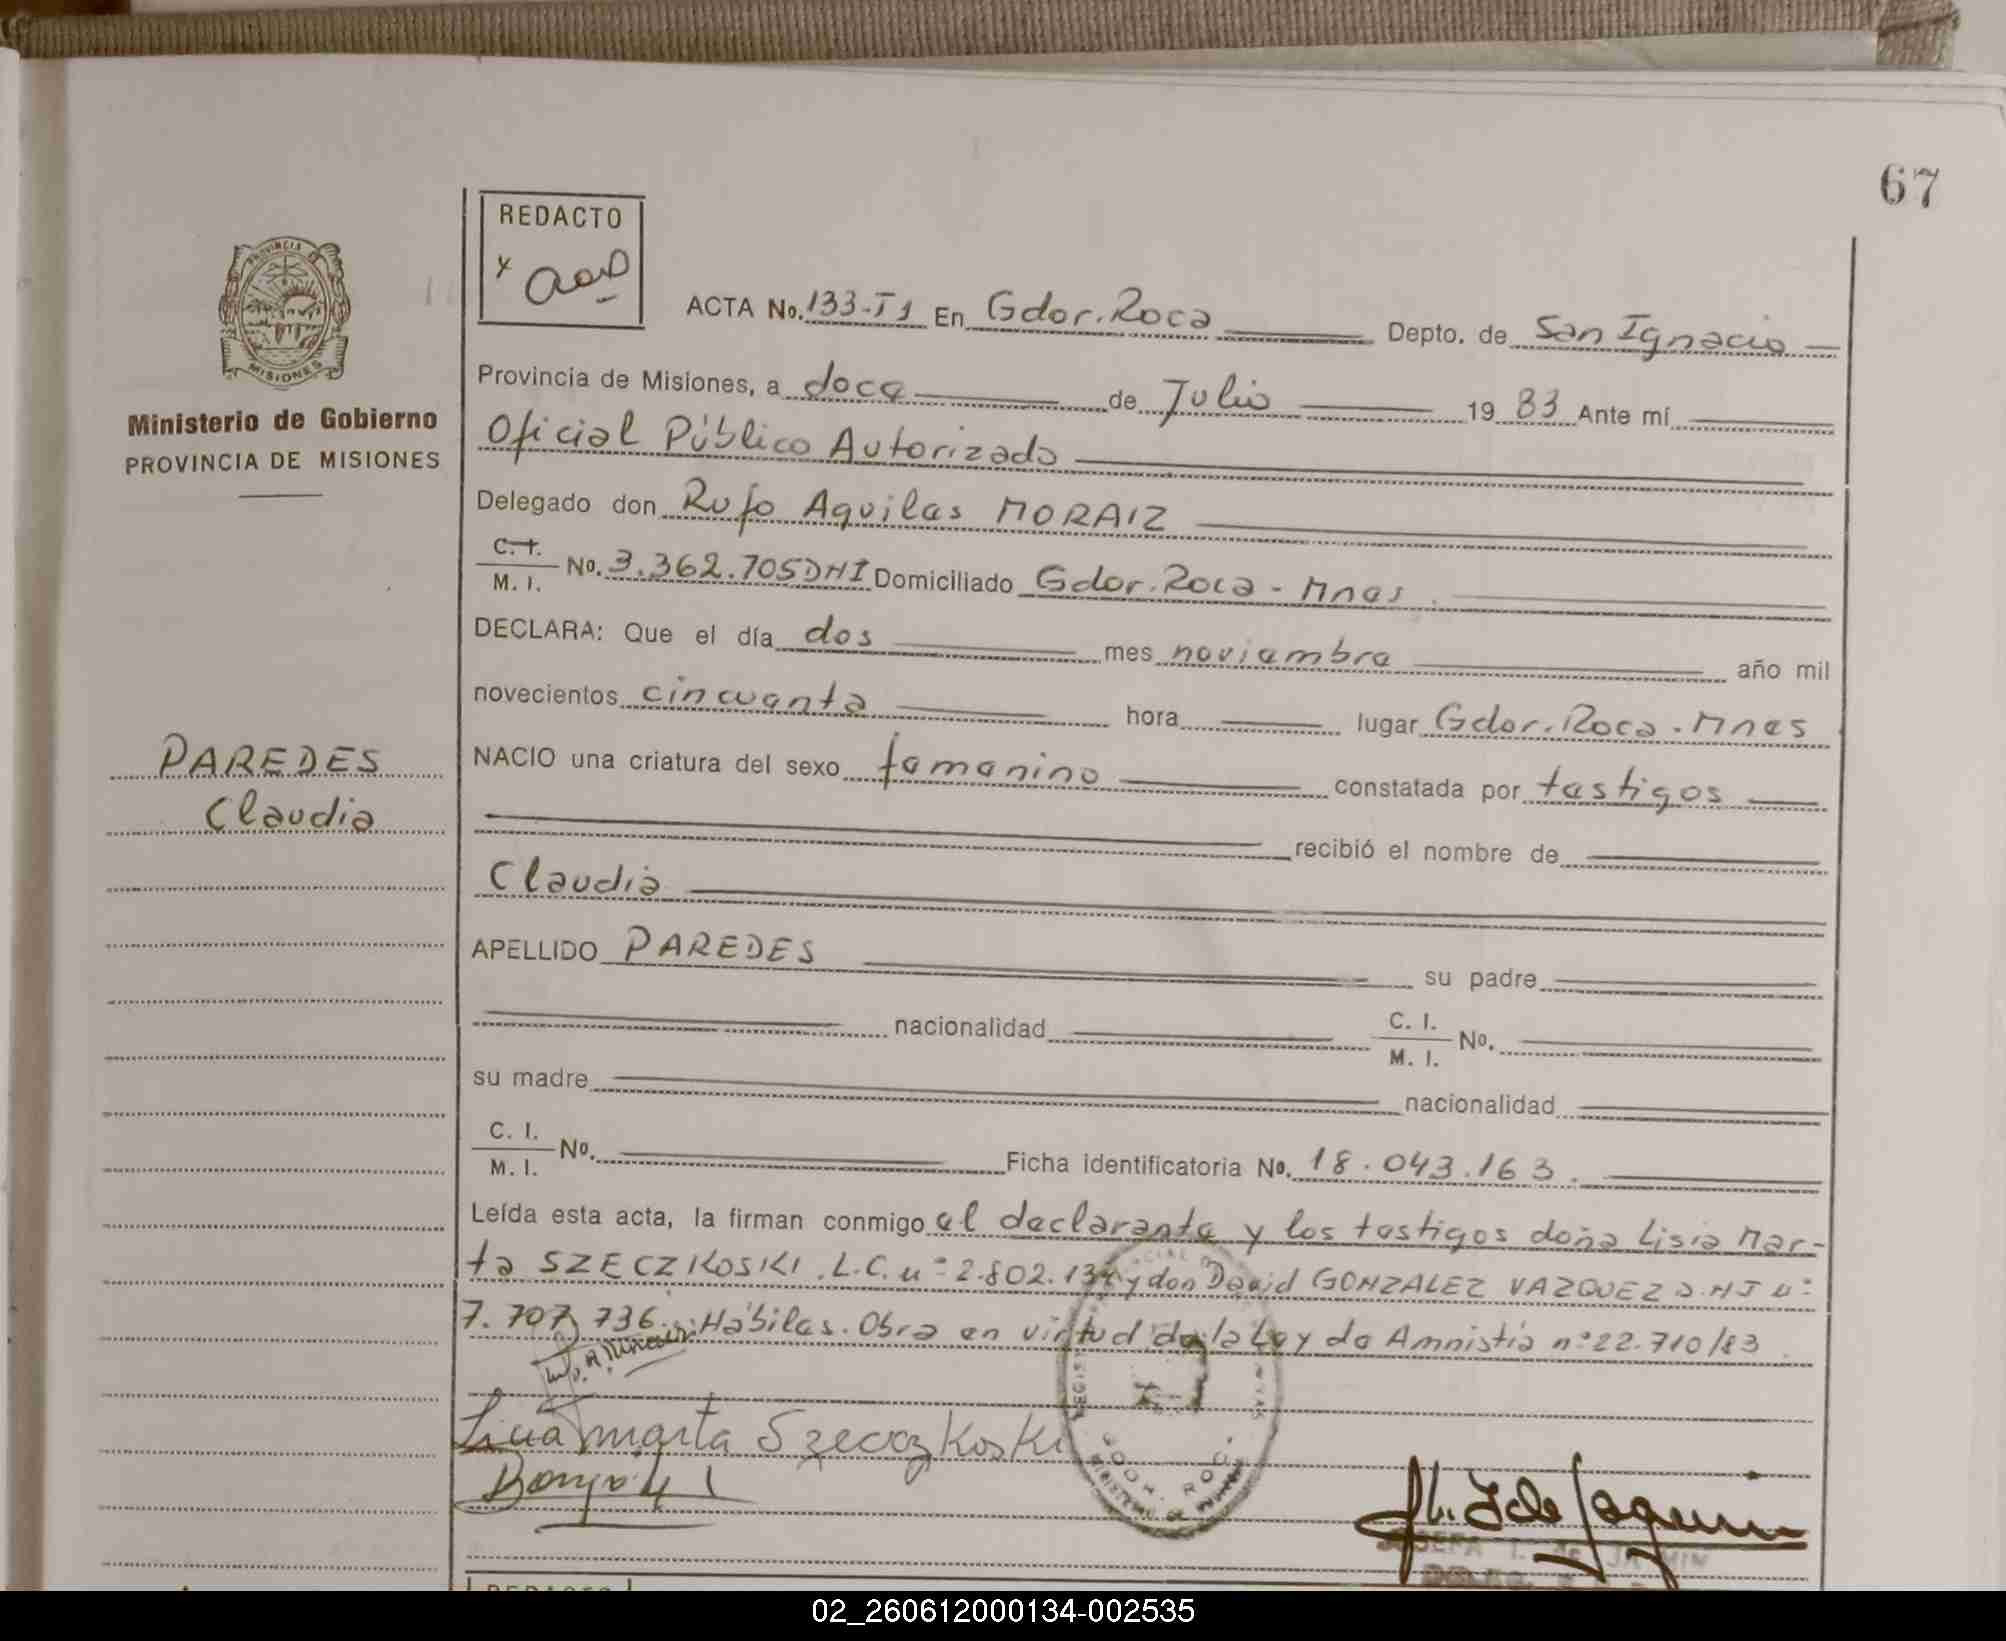 67
REDACTO
PROVINCIA
MISIONES
Ministerio de Gobierno
PROVINCIA DE MISIONES
ACTA No. 133-T1 En Gdor. Roca Depto. de San Ignacio
Provincia de Misiones, a doce de Julio 1983 Ante mí
Oficial Público Autorizado
Delegado don Rufo Aquilas MORAIZ
C. I. M. I. No. 3.362.705 DNI Domiciliado Gdor. Roca - Mnes.
DECLARA: Que el día dos mes noviembre año mil
novecientos cincuenta hora lugar Gdor. Roca - Mnes
PAREDES
Claudia
NACIO una criatura del sexo femenino constatada por testigos
recibió el nombre de
Claudia
APELLIDO PAREDES su padre
nacionalidad C. I. M. I. No.
su madre nacionalidad
C. I. M. I. No. Ficha identificatoria No. 18.043.163.
Leída esta acta, la firman conmigo el declarante y los testigos doña Lisia Mar-
ta SZECZKOSKI. L.C. nº 2.802.134 y don David GONZALEZ VAZQUEZ D.N.I nº
7.707.736.: Hábiles. Obra en virtud de la Ley de Amnistía nº 22.710/83
Marta Szeczkoski
02_260612000134-002535